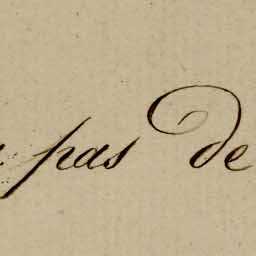 pas de